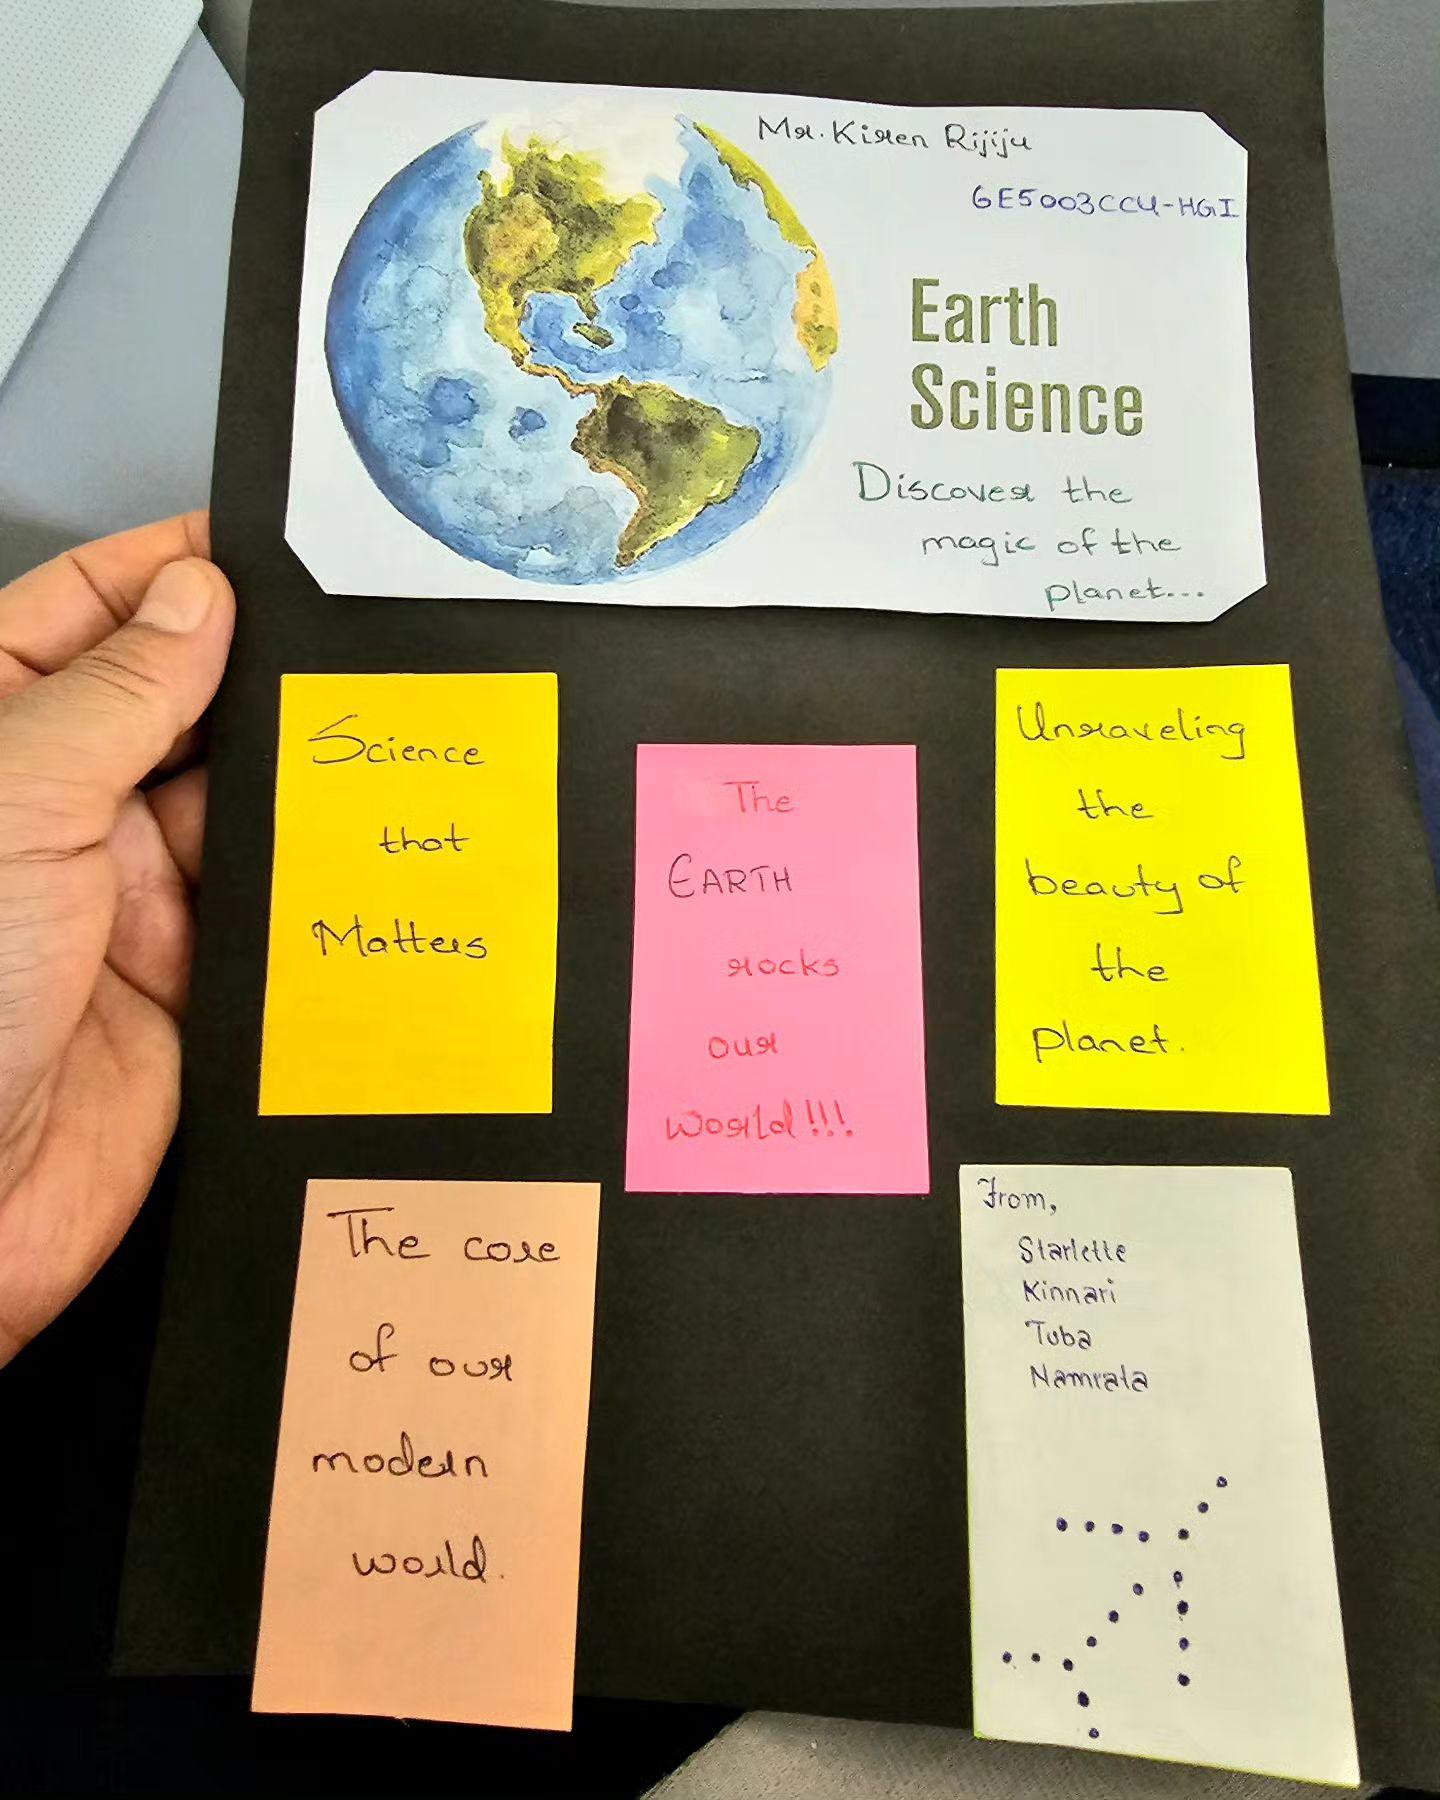 Mr. Kiren Rijiju
6E5003CCU-HGI
Earth
Science
Discover the
magic of the
planet...
Science
that
Matters
The
EARTH
rocks
our
world!!!
Unraveling
the
beauty of
the
planet.
The core
of our
modern
world.
From,
Starlette
Kinnari
Tuba
Namrata